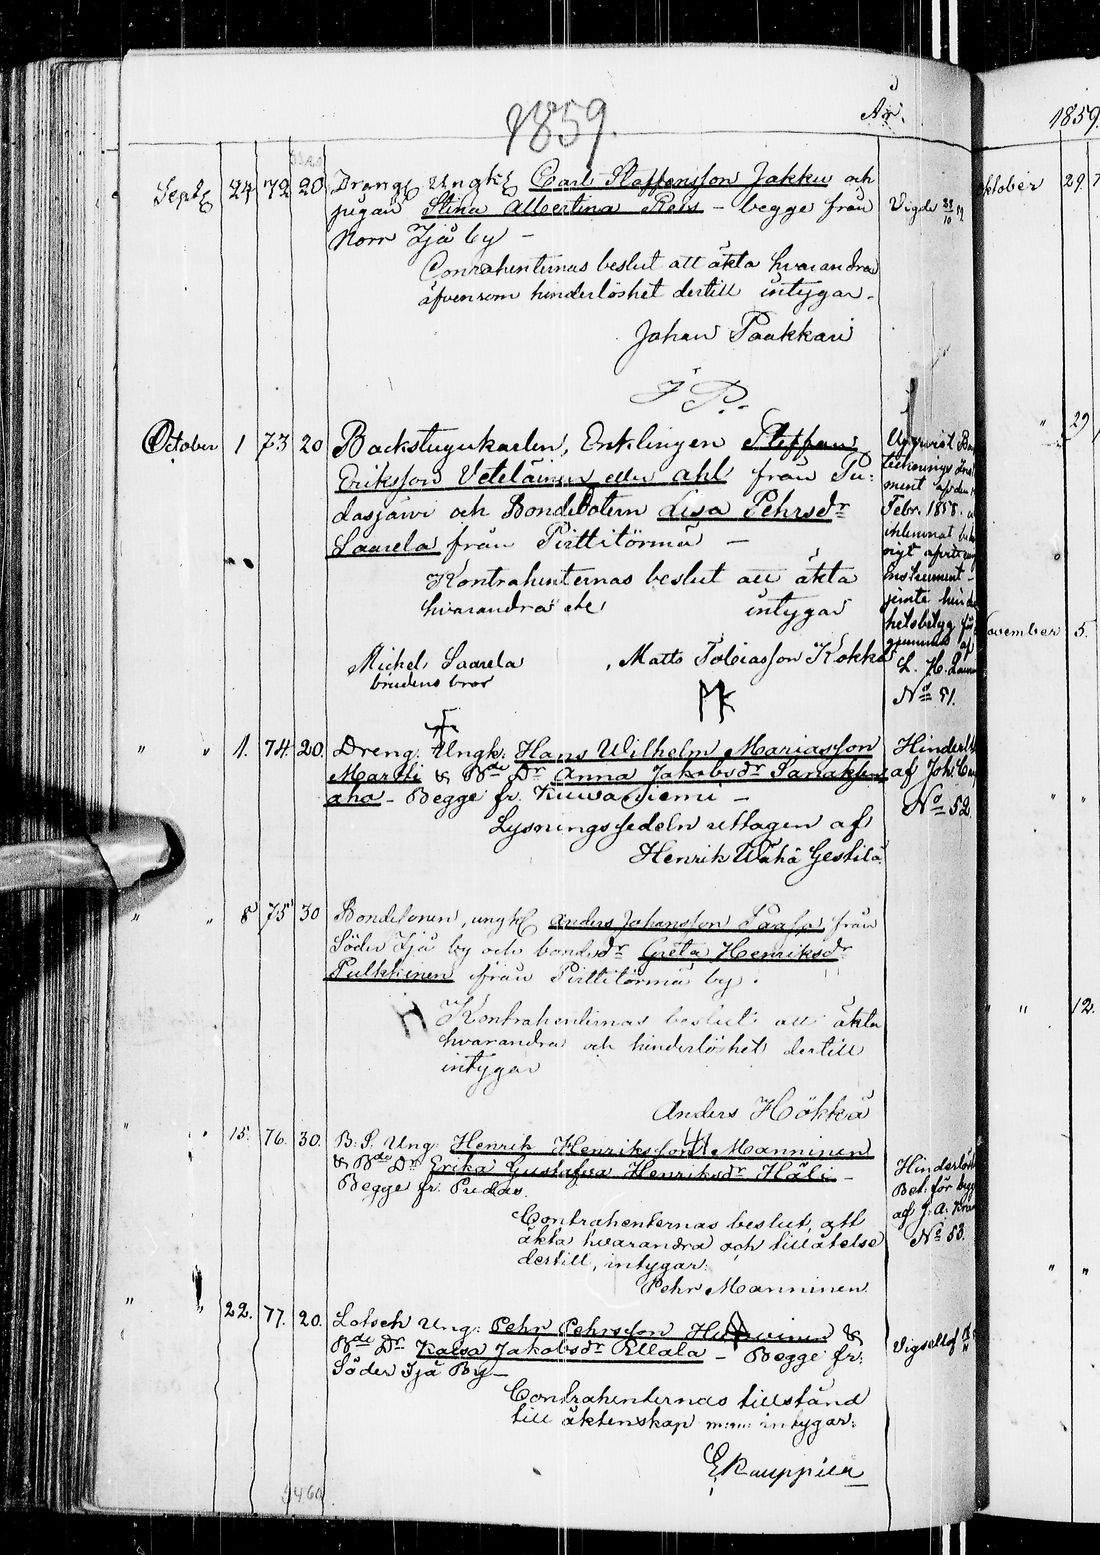 1859.
År.
Sept 24 72 20 Dreng Ungk Carl Staffansson Jakku och
pigan Stina Albertina Reis - begge från
Norr Ijå by -
Vigde 28/10
Contrahenternas beslut att äkta hvarandra
äfvensom hinderlöshet dertill intygar.
Johan Paakkari
J P.
October 1 73 20 Backstugukarlen, Enklingen Steffan
Eriksson Veteläinen eller Ahl från Pu-
dasjärvi och Bondedotern Lisa Pehrsdr
Saarela från Pirttitörmä -
Kontrahenternas beslut att äkta
hvarandra etc intygar
Michel Saarela
brudens bror
Matts Tobiasson Kokko
MK
Febr. 1858.
Instrument
jemte
hetsbetyg
af
L. H.
No 51.
" " 1. 74. 20. Dreng Ungk: Hans Wilhelm Mariasson
Martti & Bde Dr Anna Jakobsdr Sarrakken
aho - Begge fr. Kuivaniemi -
Lysningssedeln uttagen af
Henrik Wähä Gestilä
af Joh:
No 52.
" " 8 75 30 Bondesonen, ungk Anders Johansson Paaso, från
Söder Ijå by och bondedr Greta Henriksdr
Pulkkinen från Pirttitörmä by.
H Kontrahenternas beslut att äkta
hvarandra och hinderlöshet dertill
intygar
Anders Hökkä
" " 15. 76. 30. B. S. Ung. Henrik Henriksson Manninen
& Bde Dr Erika Gustafva Henriksdr Häli -
Begge fr. Pudas.
Bet. för
af J. A.
No 53.
Contrahenternas beslut, att
äkta hvarandra och tillåtelse
dertill, intygar:
Pehr Manninen
" " 22. 77. 20. Lotsen Ung: Pehr Pehrsson &
Bde Dr Kaisa Jakobsdr Ellala - Begge fr:
Söder Ijå By -
Contrahenternas tillstånd
till äktenskap m:m: intygar:
E Kauppila
1859.
29.
" 29
November 5.
" " 12.
" "